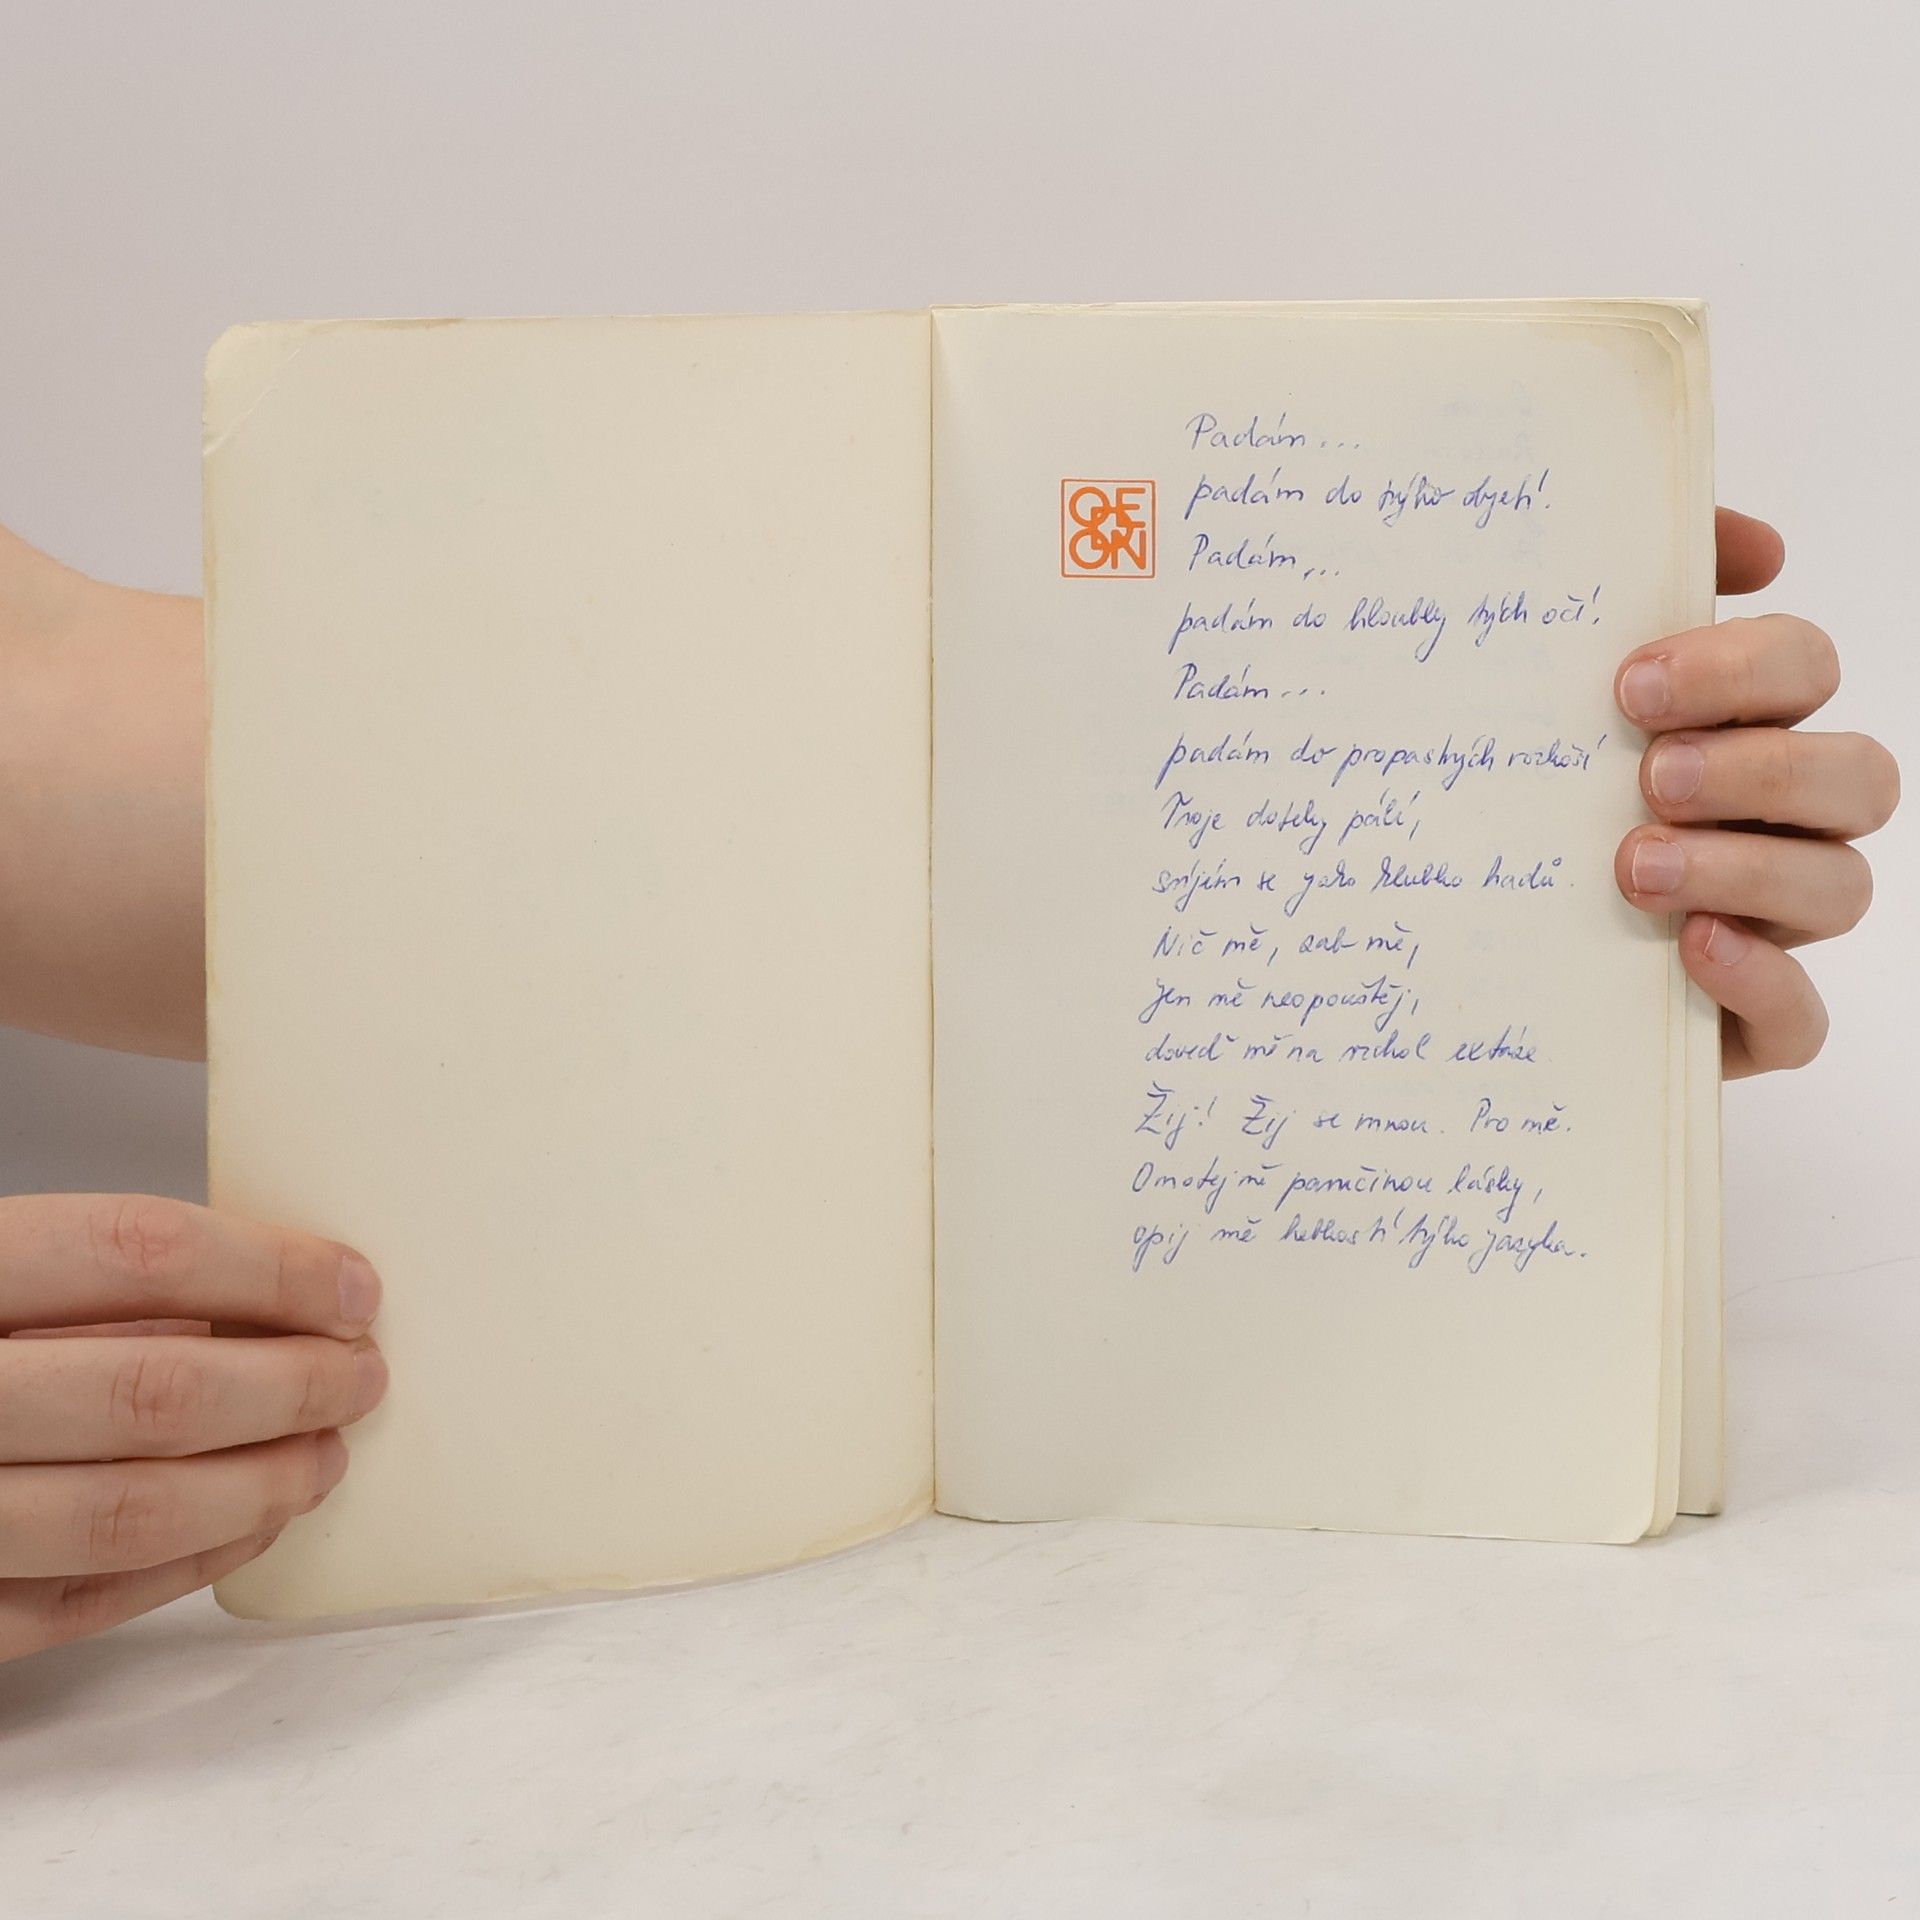 Padám...
padám do týho objetí.
ODEON
Padám...
padám do hloubky tých očí.
Padám...
padám do propastných rozkoší
Tvoje doteky pálí,
svíjím se jako klubko hadů.
Nič mě, zab mě,
jen mě neopouštěj,
doveď mě na vrchol extáze.
Žij! Žij se mnou. Pro mě.
Omotej mě pavučinou lásky,
opij mě hebkostí týho jazyka.